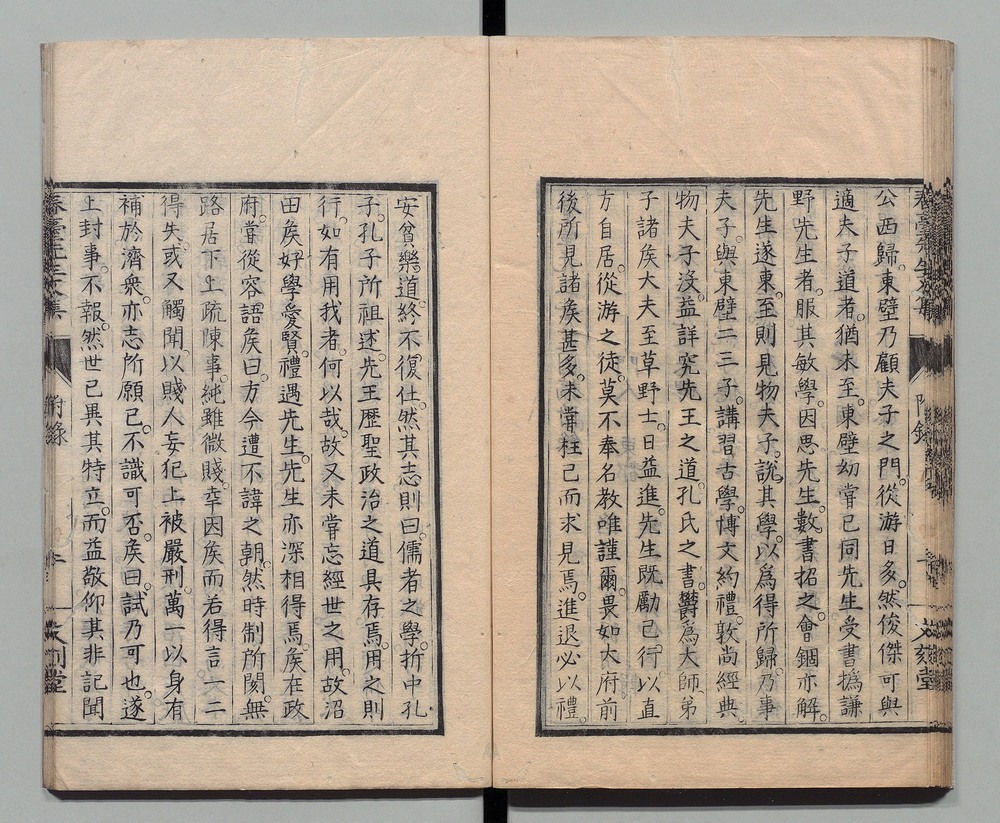 公西歸。東壁乃顧夫子之門。從游日多。然俊傑可與
適夫子道者。猶未至。東壁幼嘗已同先生受書撝謙
野先生者。服其敏學。因思先生。數書招之。會錮亦解。
先生遂東。至則見物夫子。說其學。以爲得所歸。乃事
夫子。與東壁二三子。講習古學。博文約禮。敦尚經典。
物夫子沒。益詳究先王之道。孔氏之書。鬱爲大師。弟
子諸矦大夫至草野士。日益進。先生既勵己行。以直
方自居。從游之徒。莫不奉名教唯謹爾。畏如大府前
後所見諸矦甚多。未嘗枉己而求見焉。進退必以禮。
安貧樂道。終不復仕。然其志則曰。儒者之學。折中孔
子。孔子所祖述。先王歷聖政治之道具存焉。用之則
行。如有用我者。何以哉。故又未嘗忘經世之用。故沼
田矦好學愛賢。禮遇先生。先生亦深相得焉。矦在政
府。嘗從容語矦曰。方今遭不諱之朝。然時制所閡。無
路居下上疏陳事。純雖微賤。幸因矦而若得言一二
得失。或又觸聞。以賤人妄犯上被嚴刑。萬一以身有
補於濟衆。亦志所願已。不識可否。矦曰。試乃可也。遂
上封事。不報。然世已異其特立。而益敬仰其非記聞
春臺先生文集
附錄